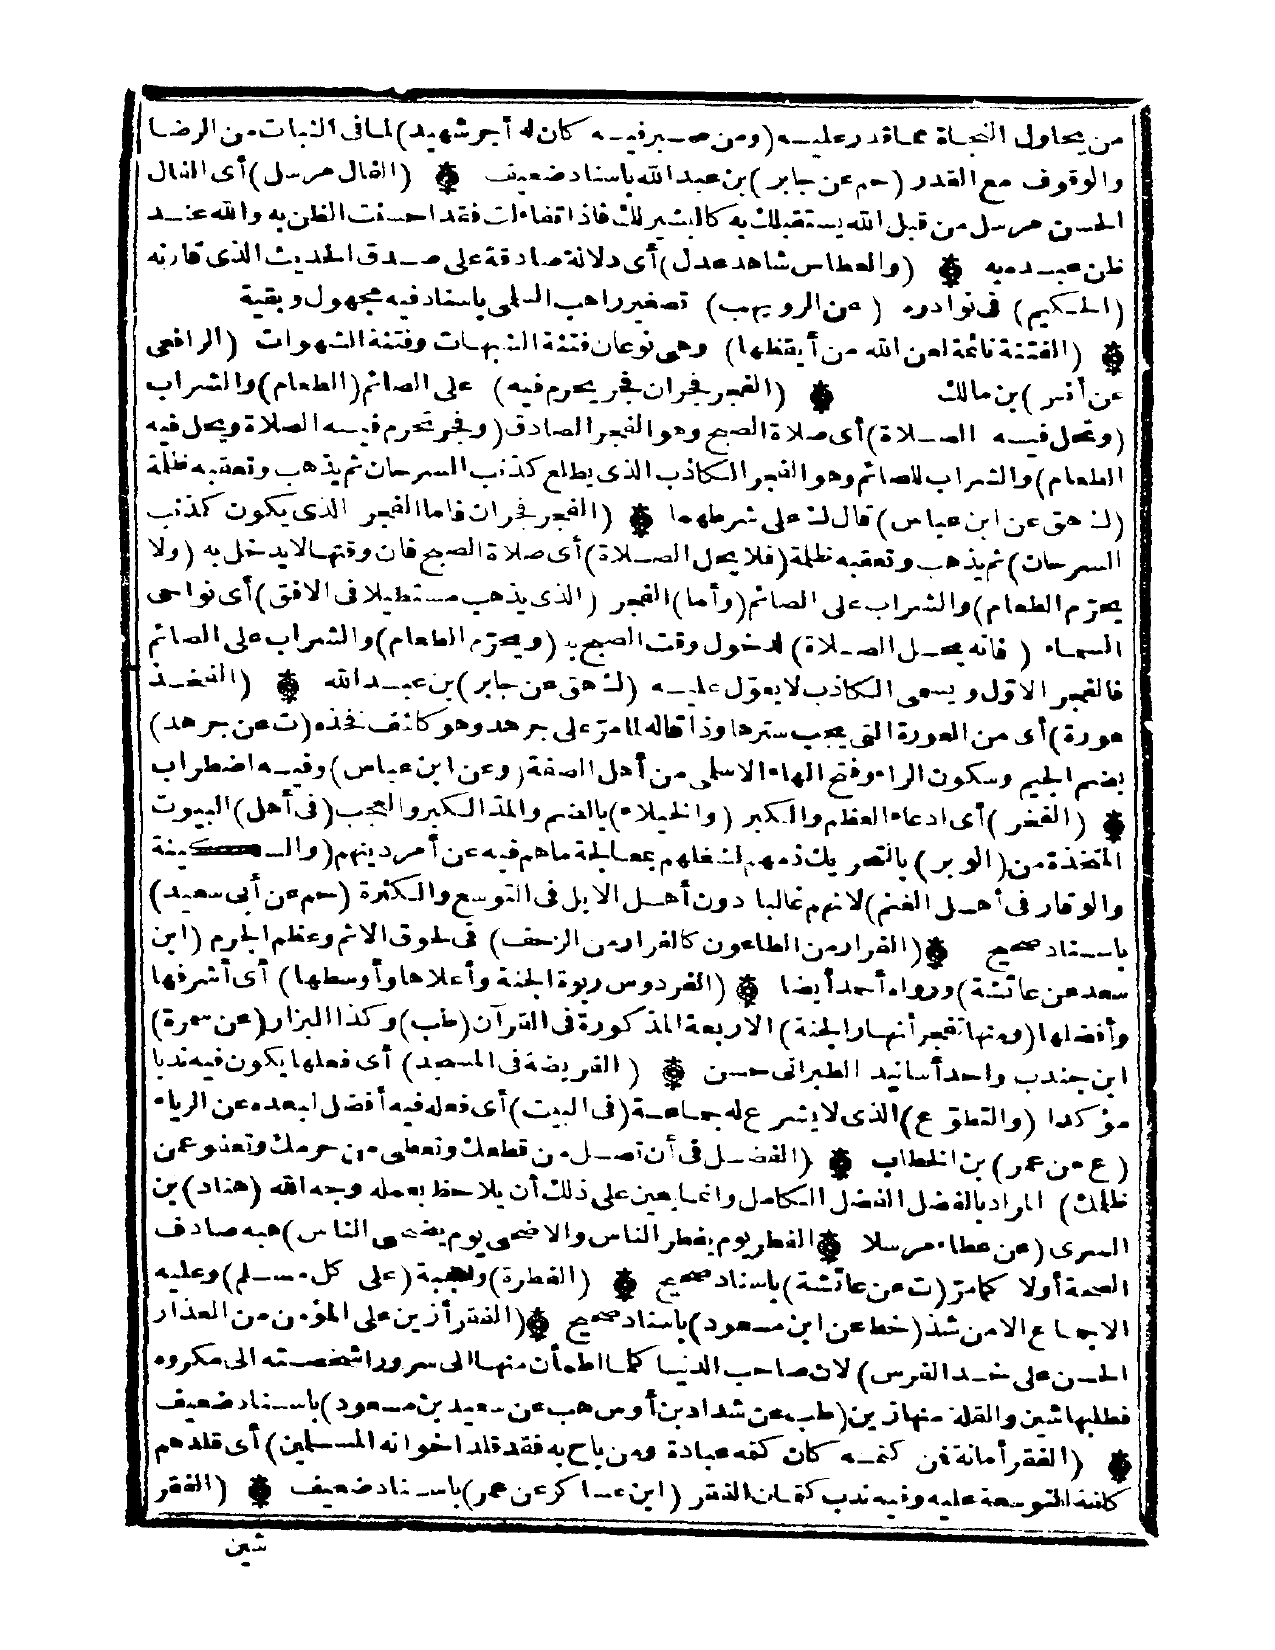 من يحاول النجاة مما قدر عليه (ومن صبر فيه كان له أجر شهيد) لما فى الثبات من الرضا
والوقوف مع القدر (حم عن جابر) بن عبد الله باسناد ضعيف ۞ (الفال مرسل) أى الفال
الحسن مرسل من قبل الله يستقبلك به كالبشير لك فاذا تفاءلت فقد احسنت الظن به والله عند
ظن عبده به ۞ (والعطاس شاهد عدل) أى دلالة صادقة على صدق الحديث الذى قارنه
(الحكيم) فى نوادره (عن الرويهب) تصغير راهب السلمى باسناد فيه مجهول وبقية
۞ (الفتنة نائمة لعن الله من أيقظها) وهى نوعان فتنة الشبهات وفتنة الشهوات (الرافعى
عن أنس) بن مالك ۞ (الفجر فجران فجر يحرم فيه) على الصائم (الطعام) والشراب
(وتحل فيه الصلاة) أى صلاة الصبح وهو الفجر الصادق (وفجر تحرم فيه الصلاة ويحل فيه
الطعام) والشراب للصائم وهو الفجر الكاذب الذى يطلع كذنب السرحان ثم يذهب وتعقبه ظلمة
(ك هق عن ابن عباس) قال ك على شرطهما ۞ (الفجر فجران فاما الفجر الذى يكون كذنب
السرحان) ثم يذهب وتعقبه ظلمة (فلا يحل الصلاة) أى صلاة الصبح فان وقتها لا يدخل به (ولا
يحرّم الطعام) والشراب على الصائم (وأما) الفجر (الذى يذهب مستطيلا فى الافق) أى نواحى
السماء (فانه يحل الصلاة) لدخول وقت الصبح به (ويحرّم الطعام) والشراب على الصائم
فالفجر الاوّل ويسمى الكاذب لا يعوّل عليه (ك هق عن جابر) بن عبد الله ۞ (الفخذ
عورة) أى من العورة التى يجب سترها وذا قاله لما مرّ على جرهد وهو كاشف فخذه (ت عن جرهد)
بضم الجيم وسكون الراء وفتح الهاء الاسلمى من أهل الصفة (وعن ابن عباس) وفيه اضطراب
۞ (الفخر) أى ادعاء العظم والكبر (والخيلاء) بالضم والمد الكبر والعجب (فى أهل) البيوت
المتخذة من (الوبر) بالتحريك ذمهم لشغلهم بمعالجة ماهم فيه عن أمر دينهم (والسكينة
والوقار فى أهل الغنم) لانهم غالبا دون أهل الابل فى التوسع والكثرة (حم عن أبى سعيد)
باسناد صحيح ۞ (الفرار من الطاعون كالفرار من الزحف) فى لحوق الاثم وعظم الجرم (ابن
سعد عن عائشة) ورواه أحمد أيضا ۞ (الفردوس ربوة الجنة وأعلاها وأوسطها) أى أشرفها
وأفضلها (ومنها تفجر أنهار الجنة) الاربعة المذكورة فى القرآن (طب) وكذا البزار (عن سمرة)
ابن جندب واحد أسانيد الطبرانى حسن ۞ (الفريضة فى المسجد) أى فعلها يكون فيه ندبا
مؤكدا (والتطوّع) الذى لا يشرع له جماعة (فى البيت) أى فعله فيه أفضل لبعده عن الرياء
(ع عن عمر) بن الخطاب ۞ (الفضل فى أن تصل من قطعك وتعطى من حرمك وتعفو عمن
ظلمك) المراد بالفضل الفضل الكامل وانما يعين على ذلك أن يلاحظ بعمله وجه الله (هناد) بن
السرى (عن عطاء مرسلا ۞ الفطر يوم يفطر الناس والاضحى يوم يضحى الناس) هبه صادف
الصحة أولا كما مرّ (ت عن عائشة) باسناد صحيح ۞ (الفطرة) واجبة (على كل مسلم) وعليه
الاجماع الا من شذ (خط عن ابن مسعود) باسناد صحيح ۞ (الفقر أزين على المؤمن من العذار
الحسن على خد الفرس) لان صاحب الدنيا كلما اطمأن منها الى سرور اشخصته الى مكروه
فطلبها شين والقلة منها زين (طب عن شداد بن أوس هب عن سعيد بن مسعود) باسناد ضعيف
۞ (الفقر أمانة فمن كتمه كان كتمه عبادة ومن باح به فقد قلد اخوانه المسلمين) أى قلدهم
كلفة التوسعة عليه وفيه ندب كتمان الفقر (ابن عساكر عن عمر) باسناد ضعيف ۞ (الفقر
شين